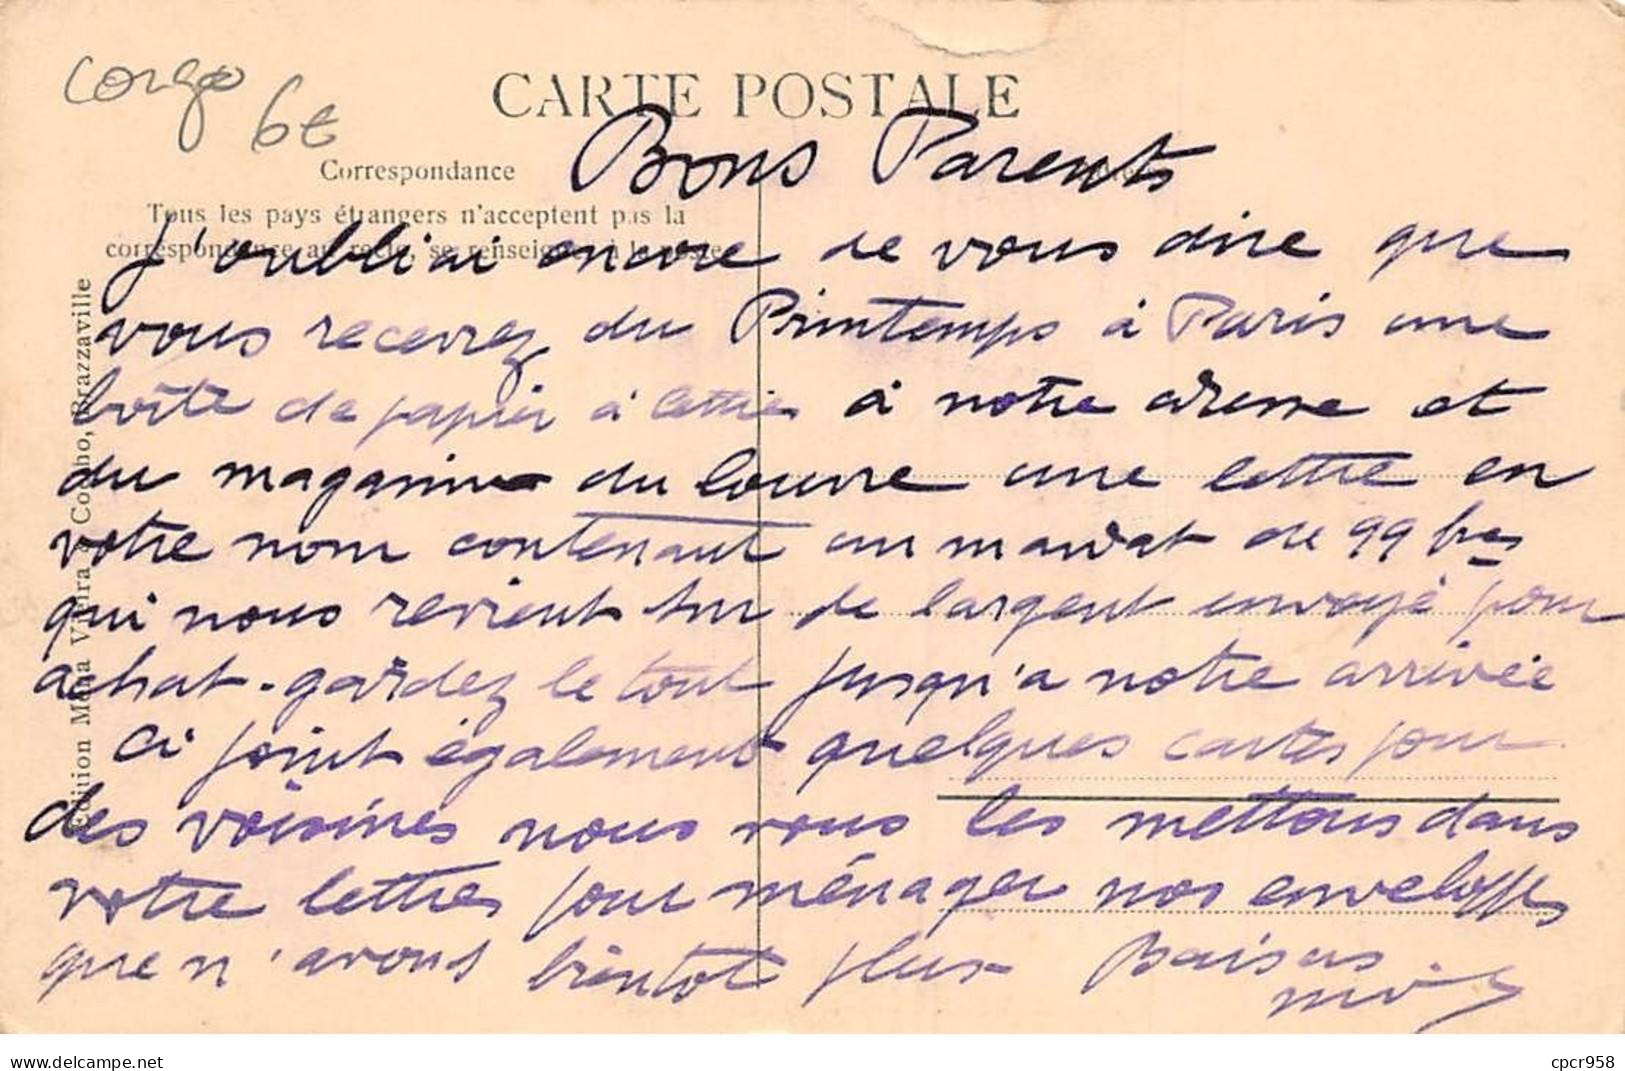 congo
6€
CARTE POSTALE
Correspondance
Tous les pays étrangers n'acceptent pas la
correspondance au recto, se renseigner à la poste
Edition Mana Vieira Brazzaville
Bons Parents
J'oubliai encore de vous dire que
vous recevrez du Printemps à Paris une
boite de papier à lettres à notre adresse et
du magasin du louvre une lettre en
votre nom contenant un mandat de 99 frs
qui nous revient sur de largent envoyé pour
achat. gardez le tout jusqu'a notre arrivée
Ci joint également quelques cartes pour
des voisines nous vous les mettons dans
votre lettres pour ménager nos enveloppes
que n'avons bientot plus Baisers
cpcr958